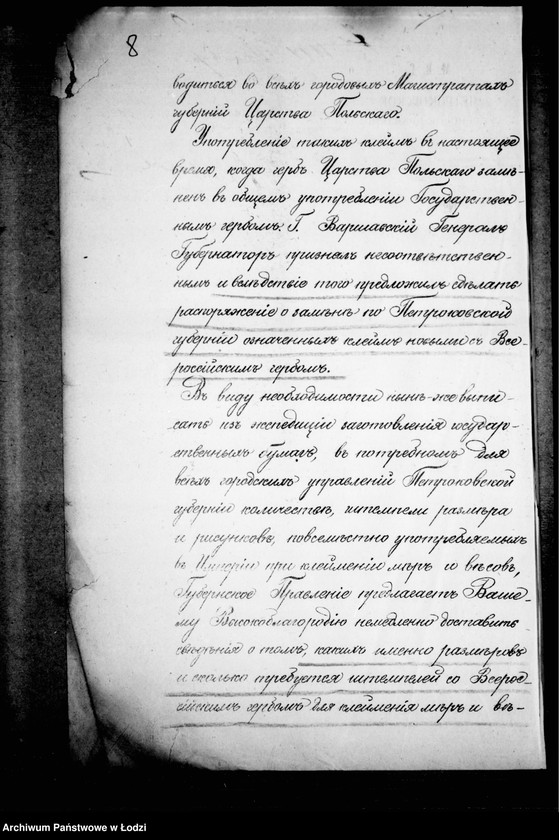 8
водиться во всѣхъ городовыхъ Магистратахъ
губерній Царства Польскаго.
Употребленіе такихъ клеймъ въ настоящее
время, когда гербъ Царства Польскаго замѣ-
ненъ въ общемъ употребленіи Государствен-
нымъ гербомъ. Г. Варшавскій Генералъ
Губернаторъ призналъ несоотвѣтствен-
нымъ и вслѣдствіе того предложилъ сдѣлать
распоряженіе о замѣнѣ по Петроковской
губерніи означенныхъ клеймъ новыми съ Все-
россійскимъ гербомъ.
Въ виду необходимости нынѣ-же выпи-
сать изъ экспедиціи заготовленія государ-
ственныхъ бумагъ, въ потребномъ для
всѣхъ городскихъ управленій Петроковской
губерніи количествѣ, штемпели размѣра
и рисунковъ, повсемѣстно употребляемыхъ
въ Имперіи при клейменіи мѣръ и вѣсовъ,
Губернское Правленіе предлагаетъ Ваше-
му Высокоблагородію немедленно доставить
свѣдѣнія о томъ, какихъ именно размѣровъ
и сколько требуется штемпелей со Всерос-
сійскимъ гербомъ для клейменія мѣръ и вѣ-
Archiwum Państwowe w Łodzi